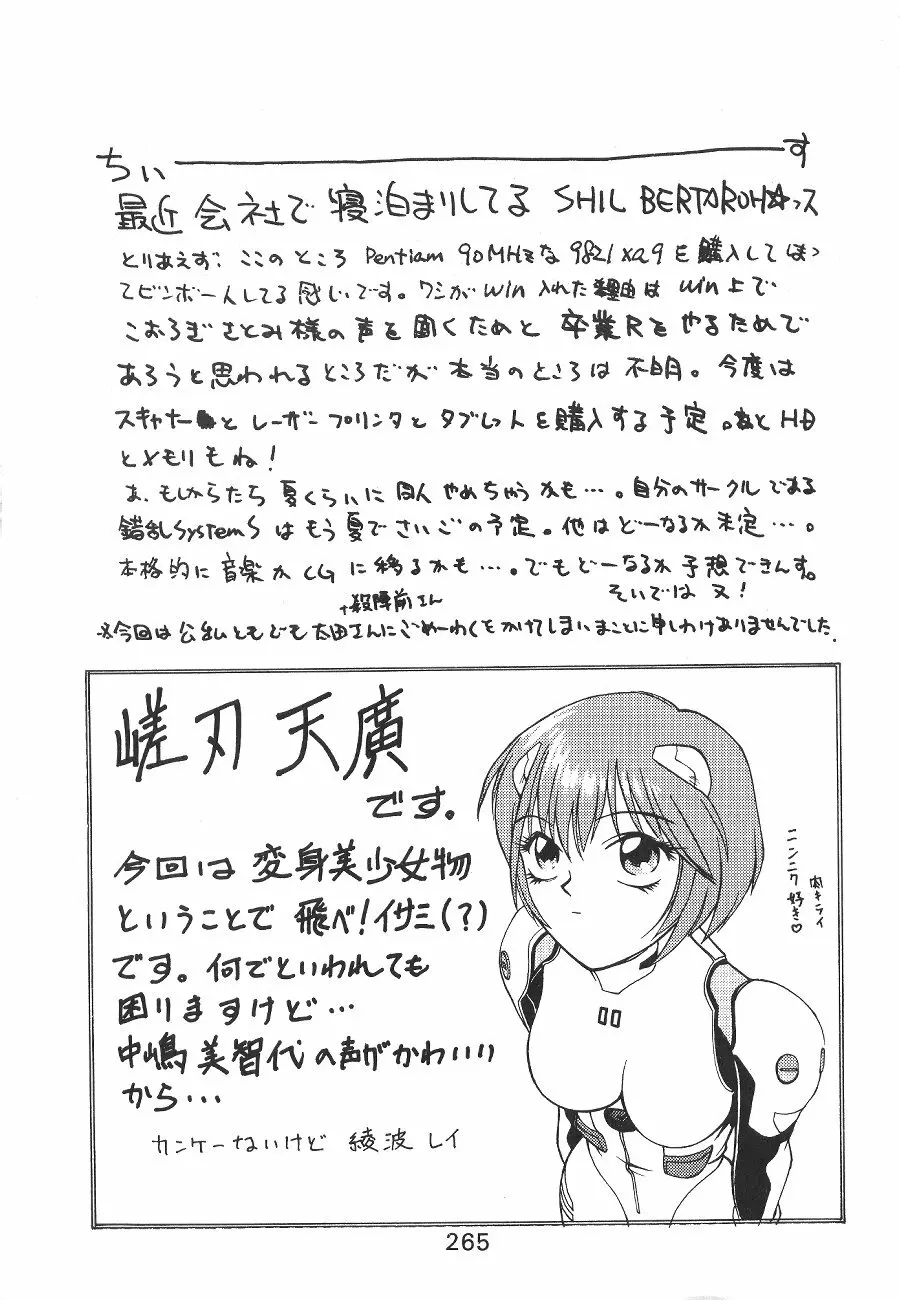 ちぃーーーーーす
最近会社で寝泊まりしてる SHIL BERTAROH☆っス
とりあえず、ここのところ Pentiam 90MHzな 9821Xa9を購入してけっ
てビンボー人してる感じです。ワシがWin入れた理由はWin上で
こおろぎさとみ様の声を聞くためと卒業Rをやるためで
あろうと思われるところだが本当のところは不明。今度は
スキャナーとレーザープリンタとタブレットを購入する予定。あとHD
とメモリもね!
あ、もしかしたら夏くらいに同人やめちゃうかも…。自分のサークルである
錯乱SystemSはもう夏でさいごの予定。他はどーなるか未定…。
本格的に音楽かCGに移るかも…。でもどーなるか予想できんす。
そいでは又!
↑殺陣前さん
※今回は公私ともども太田さんにごめーわくをかけてしまいまことに申しわけありませんでした.
嵯刃天廣
です。
今回は変身美少女物
ということで飛べ!イサミ(?)
です。何でといわれても
困りますけど…
中嶋美智代の声がかわいい
から…
カンケーないけど 綾波レイ
肉キライ
ニンニク好き♡
265